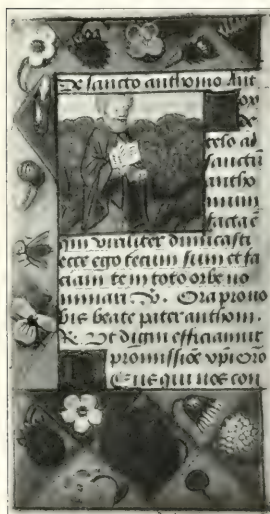 De sancto anthonio Ant
vox
de
celo ad
sanctū
antho
nium
facta ē
qui viriliter dimicasti
ecce ego tecum sum et fa
ciam te in toto orbe no
minari V. Ora pro no
bis beate pater anthoni.
R. Vt digni efficiamur
promissiōe xpi Oro
Eus qui nos con